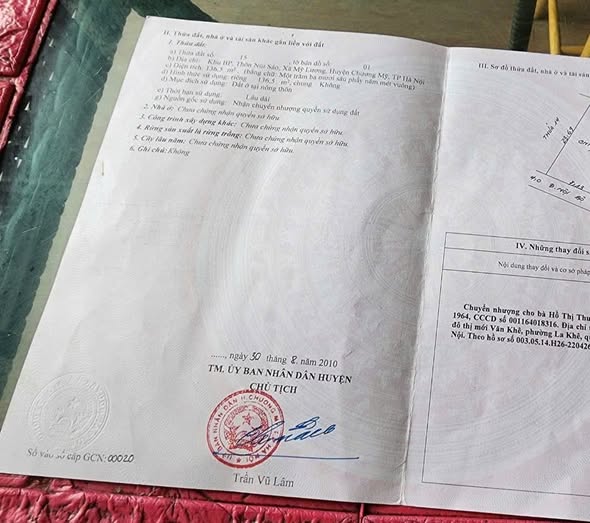 II. Thửa đất, nhà ở và tài sản khác gắn liền với đất
1. Thửa đất:
a) Thửa đất số: 15 , tờ bản đồ số: 01
b) Địa chỉ: Khu BP, Thôn Núi Sáo, Xã Mỹ Lương, Huyện Chương Mỹ, TP Hà Nội
c) Diện tích: 136,5 m² (bằng chữ: Một trăm ba mươi sáu phẩy năm mét vuông)
d) Hình thức sử dụng: riêng 136,5 m²; chung Không
đ) Mục đích sử dụng: Đất ở tại nông thôn
e) Thời hạn sử dụng: Lâu dài
g) Nguồn gốc sử dụng: Nhận chuyển nhượng quyền sử dụng đất
2. Nhà ở: Chưa chứng nhận quyền sở hữu
3. Công trình xây dựng khác: Chưa chứng nhận quyền sở hữu.
4. Rừng sản xuất là rừng trồng: Chưa chứng nhận quyền sở hữu.
5. Cây lâu năm: Chưa chứng nhận quyền sở hữu.
6. Ghi chú: Không
......, ngày 30 tháng 8. năm 2010
TM. ỦY BAN NHÂN DÂN HUYỆN
CHỦ TỊCH
Trần Vũ Lâm
Số vào sổ cấp GCN: 00020
III. Sơ đồ thửa đất, nhà ở và tài sản
THỬA 14
IV. Những thay đổi s
Nội dung thay đổi và cơ sở pháp
Chuyển nhượng cho bà Hồ Thị Thu
1964, CCCD số 001164018316. Địa chỉ
đô thị mới Văn Khê, phường La Khê, qu
Nội. Theo hồ sơ số 003.05.14.H26-220426